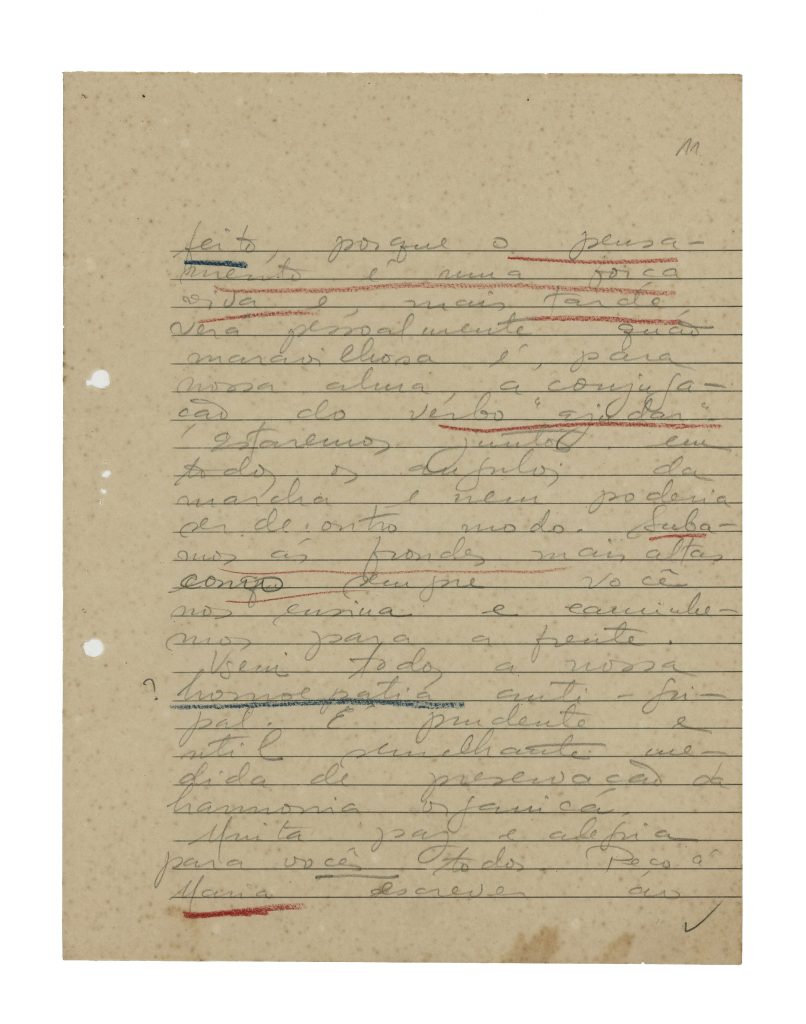 11
feito, porque o pensa-
mento é uma força
viva e, mais tarde,
verá pessoalmente quão
maravilhosa é, para
nossa alma, a conjuga-
ção do verbo "ajudar".
Estaremos juntos em
todos os angulos da
marcha e nem poderia
ser de outro modo. Suba-
mos ás frondes mais altas
como sempre você
nos ensina e caminhe-
mos para a frente.
Usem todos a nossa
? homoepatia anti-gri-
pal. É prudente e
util semelhante me-
dida de preservação da
harmonia organica.
Muita paz e alegria
para vocês todos. Peço á
Maria escrever ás